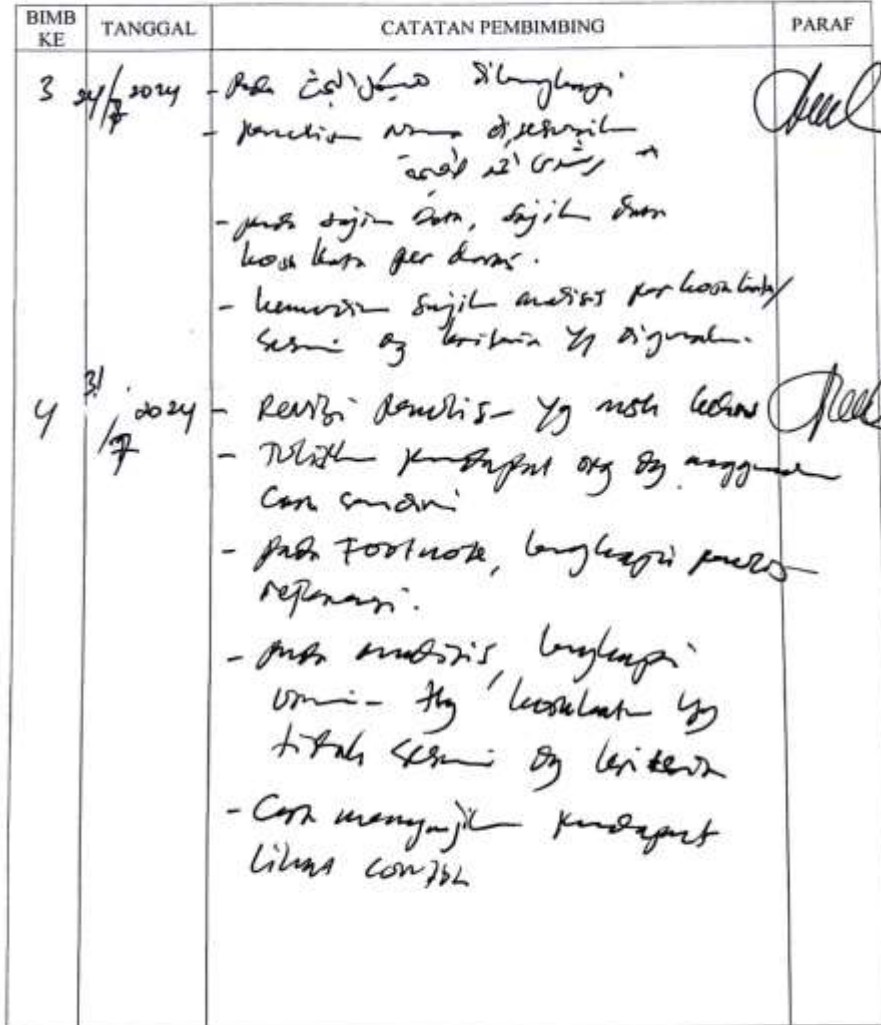 BIMB KE
TANGGAL
CATATAN PEMBIMBING
PARAF
3
24/7 2024
- Pada dilengkapi
- penulisan nama disesuaikan
- pada sajian data, sajikan data
kosa kata per dars.
- kemudian sajikan analisis per kosa kata/
sesuai dg kriteria yg digunakan.
4
31/7 2024
- Revisi penulisan yg msh
- Tuliskan pendapat org dg menggunakan
cara sendiri
- pada Footnote, lengkapi penulisan
referensi.
- pada analisis, lengkapi
ttg kosakata yg
tidak sesuai dg kriteria
- Cara menyajikan pendapat
lihat contoh